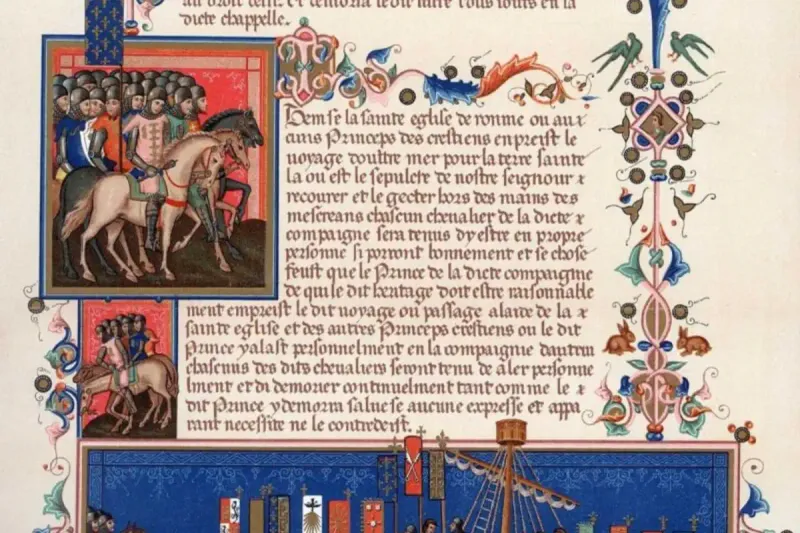 au droit desir. Et demorra le dit livre tous iours en la
dicte chappelle.
Item se la sainte eglise de romme ou aux
cuns Princeps des crestiens enpreist le
voyage doultre mer pour la terre sainte
la ou est le sepulcre de nostre seignour &
recourer et le gecter hors des mains des
mescreans chascun chevalier de la dicte &
compaigne sera tenus dy estre en propre
personne si porront bonnement et se chose
feust que le Prince de la dicte compaigne
de qui le dit heritage doit estre raisonnable
ment empreist le dit voyage ou passage a larde de la &
sainte eglise et des autres Princeps crestiens ou le dit
Prince y alast personnelment en la compaignie dautrui
chascuns des dits chevaliers seront tenu de aler personne
lment et di demorier continuelment tant comme le &
dit Prince y demorra salue se aucune expresse et appa
rant necessite ne le contredeist.